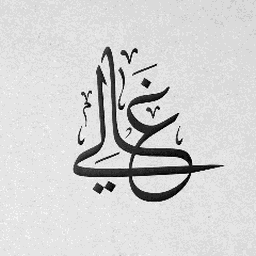 غالي